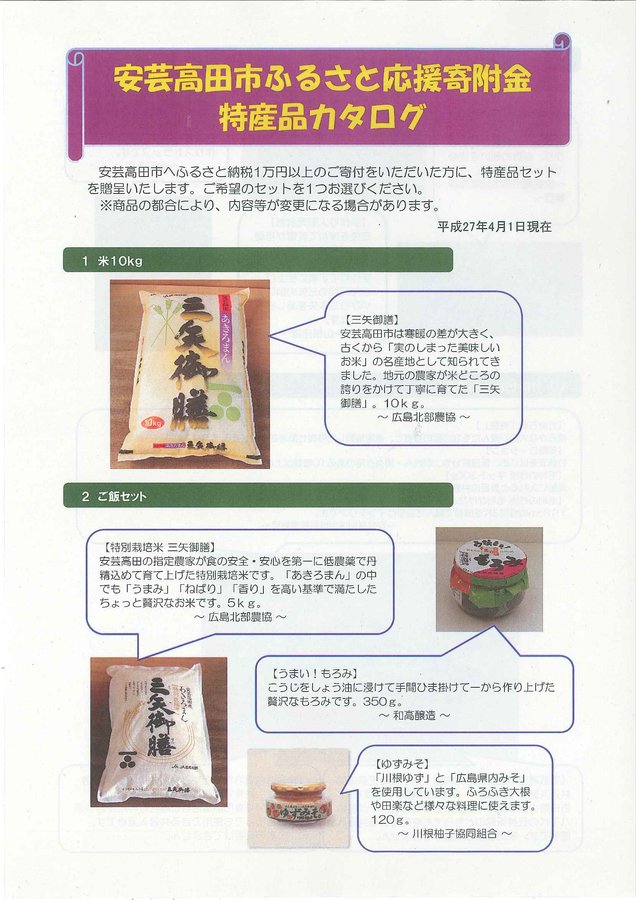 安芸高田市ふるさと応援寄附金
特産品カタログ
安芸高田市へふるさと納税1万円以上のご寄付をいただいた方に、特産品セット
を贈呈いたします。ご希望のセットを1つお選びください。
※商品の都合により、内容等が変更になる場合があります。
平成27年4月1日現在
1 米10kg
あきろまん
三矢御膳
10kg
三矢御膳
【三矢御膳】
安芸高田市は寒暖の差が大きく、
古くから「実のしまった美味しい
お米」の名産地として知られてき
ました。地元の農家が米どころの
誇りをかけて丁寧に育てた「三矢
御膳」。10kg。
～ 広島北部農協 ～
2 ご飯セット
【特別栽培米 三矢御膳】
安芸高田の指定農家が食の安全・安心を第一に低農薬で丹
精込めて育て上げた特別栽培米です。「あきろまん」の中
でも「うまみ」「ねばり」「香り」を高い基準で満たした
ちょっと贅沢なお米です。5kg。
～ 広島北部農協 ～
もろみ
あきろまん
三矢御膳
三矢御膳
【うまい！もろみ】
こうじをしょう油に浸けて手間ひま掛けて一から作り上げた
贅沢なもろみです。350g。
～ 和高醸造 ～
ゆずみそ
【ゆずみそ】
「川根ゆず」と「広島県内みそ」
を使用しています。ふろふき大根
や田楽など様々な料理に使えます。
120g。
～ 川根柚子協同組合 ～